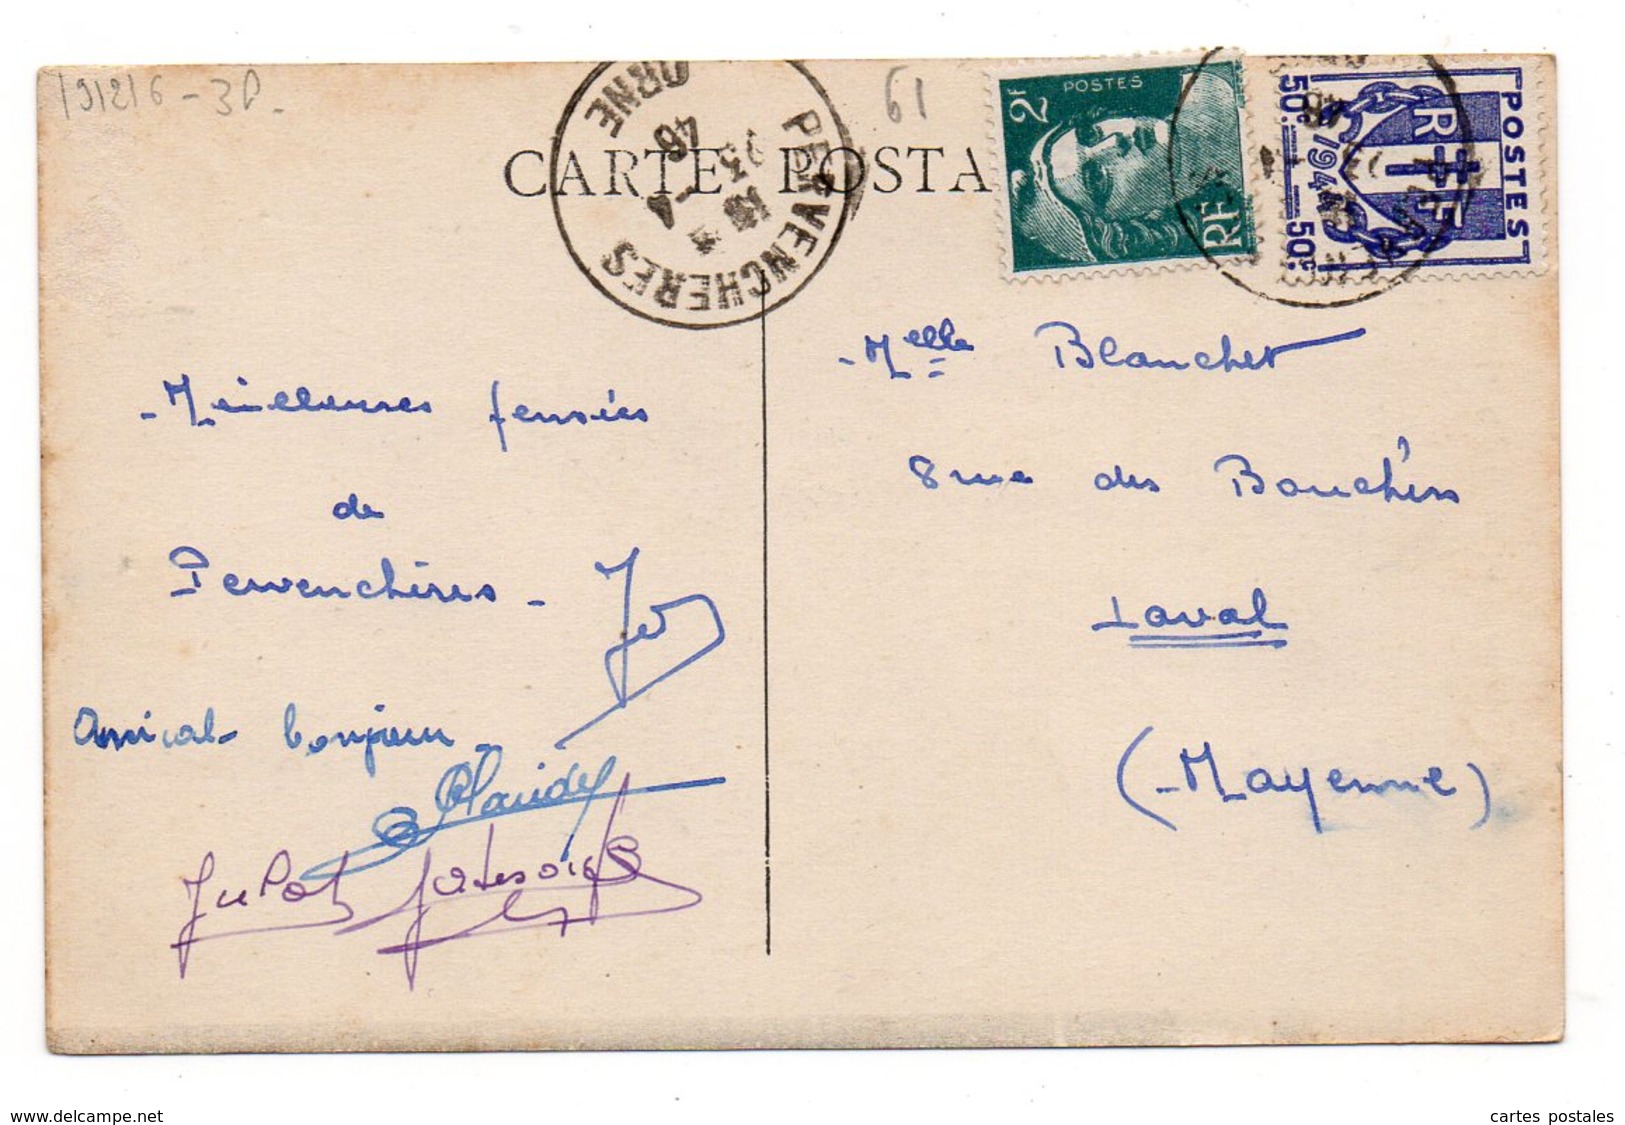 19126-3P-
61
CARTE POSTA
PERVENCHERES
ORNE
4-4
46
POSTES
2F
RF
POSTES
RF
50c 1944 50c
-Meilleures pensées
de
Pervenchères-
Amical bonjour
Claude
-Melle Blanchet
8 rue des Bouchers
Laval
(-Mayenne)
www.delcampe.net
cartes postales